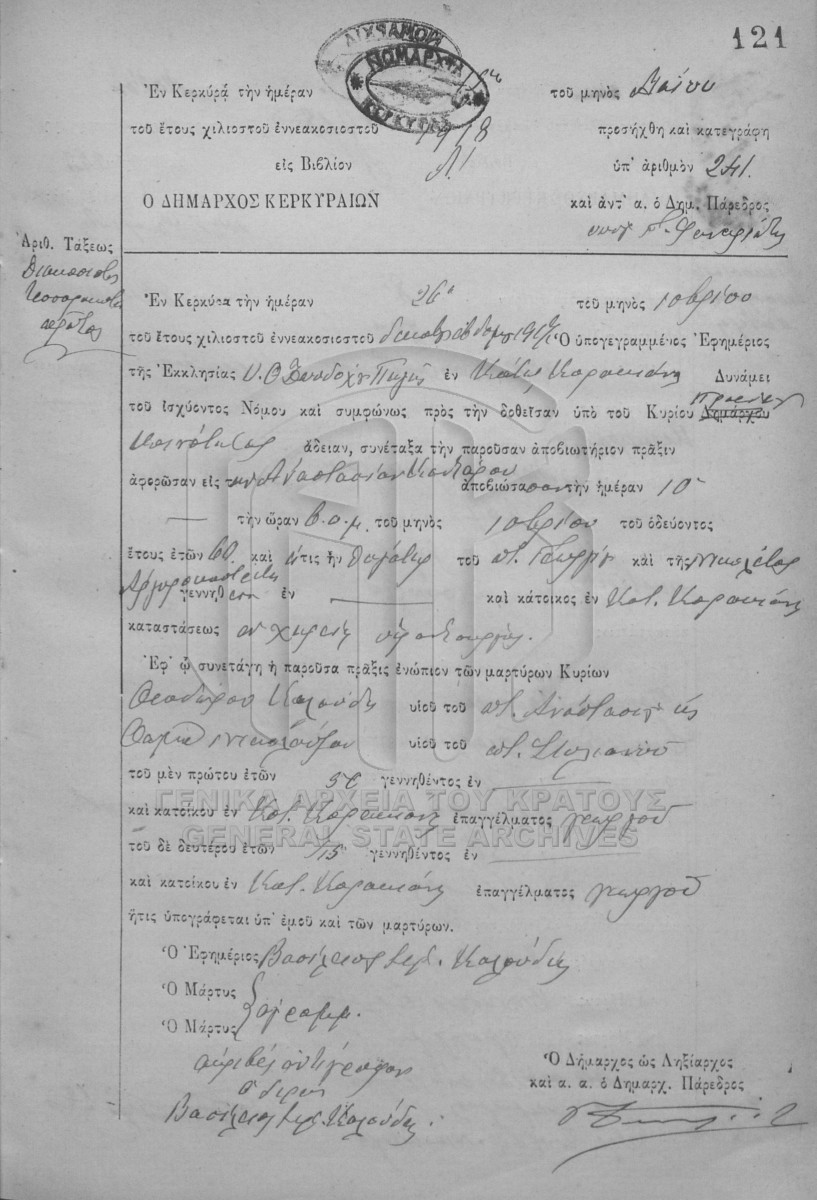 121
ΝΟΜΑΡΧΙΑ
ΚΕΡΚΥΡΑΣ
Ἐν Κερκύρᾳ τὴν ἡμέραν τοῦ μηνὸς Μαΐου
τοῦ ἔτους χιλιοστοῦ ἐννεακοσιοστοῦ 1918 προσήχθη καὶ κατεγράφη
εἰς Βιβλίον Α! ὑπ' ἀριθμὸν 241.
Ο ΔΗΜΑΡΧΟΣ ΚΕΡΚΥΡΑΙΩΝ καὶ ἀντ' α. ὁ Δημ. Πάρεδρος
Ἀριθ. Τάξεως
Διακοσιοστὸς
Τεσσαρακοστὸς
πρῶτος
Ἐν Κερκύρᾳ τὴν ἡμέραν 26ῃ τοῦ μηνὸς 10βρίου
τοῦ ἔτους χιλιοστοῦ ἐννεακοσιοστοῦ 1917 Ὁ ὑπογεγραμμένος Ἐφημέριος
τῆς Ἐκκλησίας Υ. Θ. Ζωοδόχου Πηγῆς ἐν Κάτω Κορακιάνᾳ Δυνάμει
τοῦ ἰσχύοντος Νόμου καὶ συμφώνως πρὸς τὴν δοθεῖσαν ὑπὸ τοῦ Κυρίου Δημάρχου Προέδρου
Κοινότητος ἄδειαν, συνέταξα τὴν παροῦσαν ἀποβιωτήριον πρᾶξιν
ἀφορῶσαν εἰς τὴν Ἀναστασίαν ἀποβιώσασαν τὴν ἡμέραν 10
τὴν ὥραν β. π. μ. τοῦ μηνὸς 10βρίου τοῦ ὁδεύοντος
ἔτους ἐτῶν 60 καὶ ἥτις ἦν θυγάτηρ τοῦ ποτ. Γεωργίου καὶ τῆς Νικολέτας
γεννηθεῖσα ἐν καὶ κάτοικος ἐν Κάτ. Κορακιάνᾳ
καταστάσεως ἐν χηρείᾳ
Ἐφ' ᾧ συνετάγη ἡ παροῦσα πρᾶξις ἐνώπιον τῶν μαρτύρων Κυρίων
Θεοδώρου Καλούδη υἱοῦ τοῦ ποτ. Ἀναστασίου κ
υἱοῦ τοῦ ποτ. Στυλιανοῦ
τοῦ μὲν πρώτου ἐτῶν 50 γεννηθέντος ἐν
καὶ κατοίκου ἐν Κάτ. Κορακιάνᾳ ἐπαγγέλματος γεωργοῦ
τοῦ δὲ δευτέρου ἐτῶν γεννηθέντος ἐν
καὶ κατοίκου ἐν Κάτ. Κορακιάνᾳ ἐπαγγέλματος γεωργοῦ
ἥτις ὑπογράφεται ὑπ' ἐμοῦ καὶ τῶν μαρτύρων.
Ὁ Ἐφημέριος Βασίλειος Ἱερ. Καλούδης
Ὁ Μάρτυς
ἀγράμμ.
Ὁ Μάρτυς
ἀκριβὲς ἀντίγραφον
ὁ ἱερεὺς
Βασίλειος Ἱερ. Καλούδης
Ὁ Δήμαρχος ὡς Ληξίαρχος
καὶ α. α. ὁ Δημαρχ. Πάρεδρος
ΓΕΝΙΚΑ ΑΡΧΕΙΑ ΤΟΥ ΚΡΑΤΟΥΣ
GENERAL STATE ARCHIVES